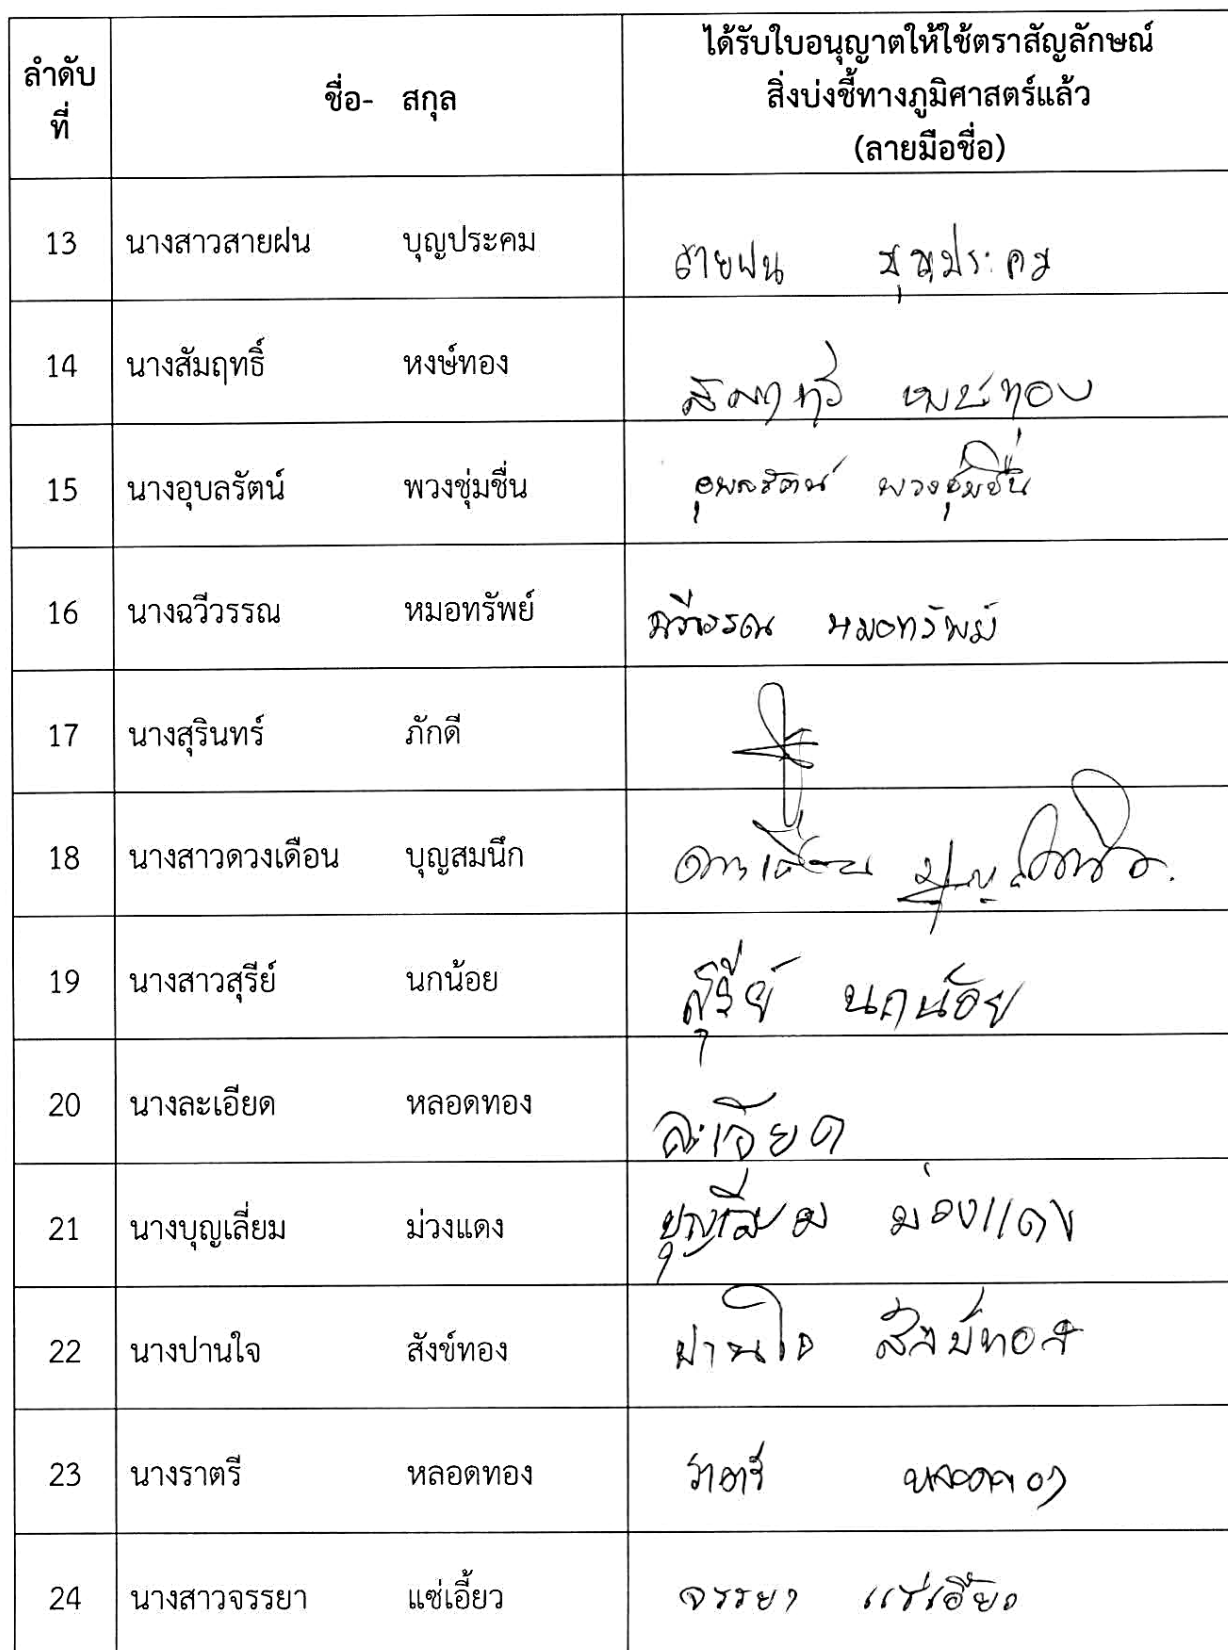 ลำดับที่ ชื่อ- สกุล ได้รับใบอนุญาตให้ใช้ตราสัญลักษณ์
สิ่งบ่งชี้ทางภูมิศาสตร์แล้ว
(ลายมือชื่อ)
13 นางสาวสายฝน บุญประคม สายฝน บุญประคม
14 นางสัมฤทธิ์ หงษ์ทอง
15 นางอุบลรัตน์ พวงชุ่มชื่น อุบลรัตน์ พวงชุ่มชื่น
16 นางฉวีวรรณ หมอทรัพย์ ฉวีวรรณ หมอทรัพย์
17 นางสุรินทร์ ภักดี
18 นางสาวดวงเดือน บุญสมนึก
19 นางสาวสุรีย์ นกน้อย สุรีย์ นกน้อย
20 นางละเอียด หลอดทอง ละเอียด
21 นางบุญเลี่ยม ม่วงแดง
22 นางปานใจ สังข์ทอง ปานใจ สังข์ทอง
23 นางราตรี หลอดทอง ราตรี
24 นางสาวจรรยา แซ่เอี้ยว จรรยา แซ่เอี้ยว